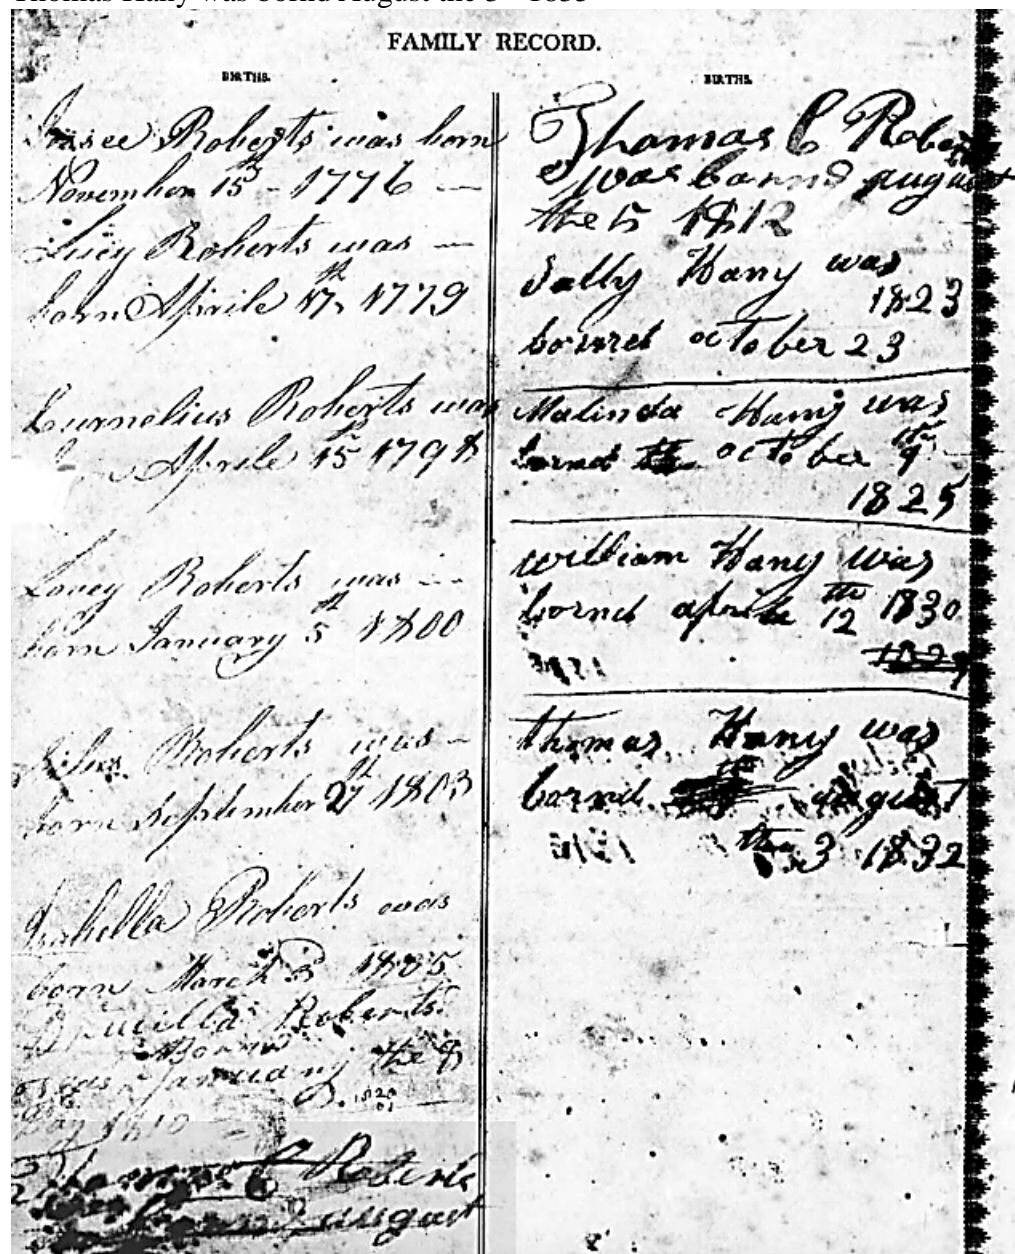 FAMILY RECORD.
BIRTHS.
Roberts was born
November 15th - 1776
Lucy Roberts was
born Aprile 17th 1779
Curnelius Roberts was
Aprile 15th 1798
Roberts was
born January 5th 1800
Roberts was
born September 27th 1803
Isabella Roberts was
born March 3 1805
Roberts
Born
was January the 9
1810
Thomas C Roberts
august
BIRTHS.
Thomas C Roberts
was bornd august
the 5 1812
Sally Hany was
1823
bornd october 23
Malinda Hany was
bornd october 9th
1825
william Hany was
bornd aprile 12th 1830
thomas Hany was
bornd august
the 3 1832